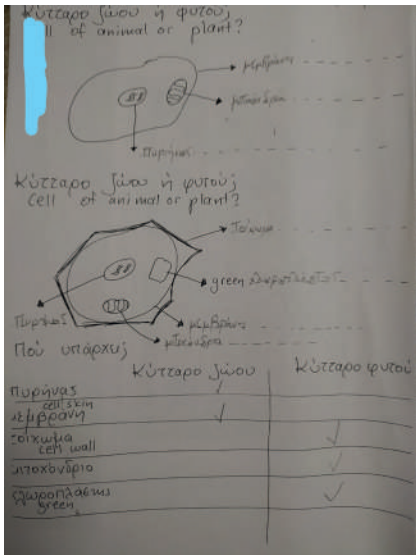 Κύτταρο ζώου ή φυτού;
Cell of animal or plant?
μεμβράνη
πυρήνας
Κύτταρο ζώου ή φυτού;
Cell of animal or plant?
τοίχωμα
green
Πυρήνας
μεμβράνη
μιτοχόνδρια
Πού υπάρχει;
Κύτταρο ζώου Κύτταρο φυτού
Πυρήνας
cell skin
μεμβράνη
τοίχωμα
cell wall
μιτοχόνδρια
χλωροπλάστης
green